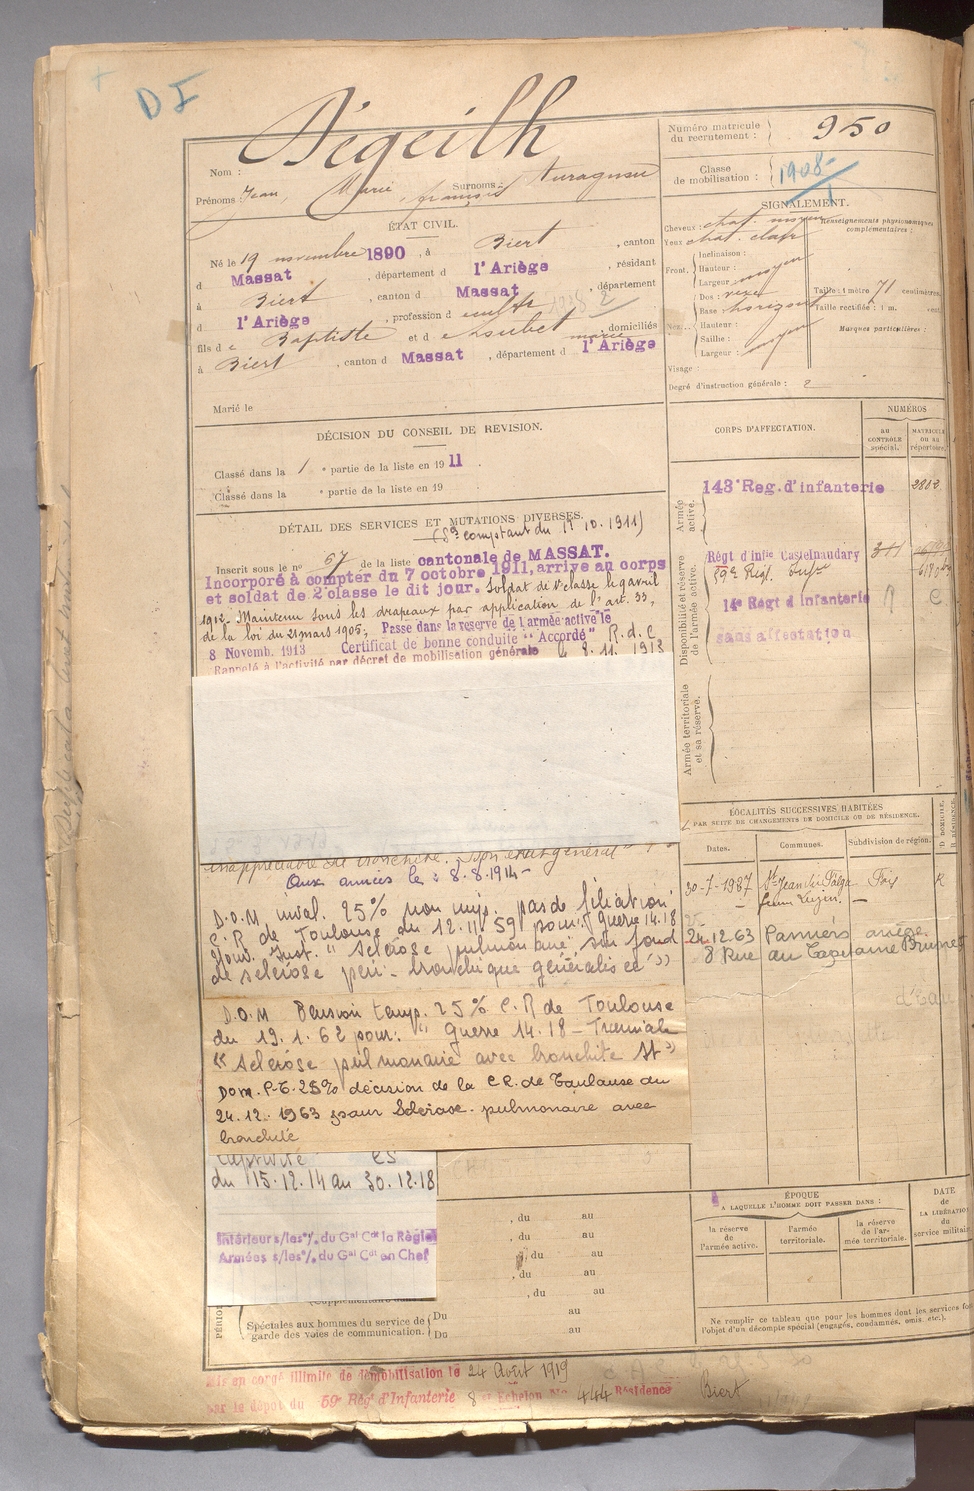 DI
Dégeilh
Nom :
Prénoms : Jean, Marie françois Surnoms :
Numéro matricule du recrutement : 950
Classe de mobilisation : 1908
ÉTAT CIVIL.
Né le 19 novembre 1890, à Biert, canton
d Massat, département d l'Ariège, résidant
à Biert, canton d Massat, département
d l'Ariège, profession d
fils d e Baptiste et d e Loubet marie, domiciliés
à Biert, canton d Massat, département d l'Ariège
Marié le
SIGNALEMENT.
Cheveux : chat. moyen
Yeux chat. clair
Front.
Inclinaison :
Hauteur :
Largeur : moyen
Nez.
Dos :
Base horizont
Hauteur :
Saillie :
Largeur : moyen
Visage :
Renseignements physionomiques complémentaires :
Taille : 1 mètre 71 centimètres.
Taille rectifiée : 1 m. cent.
Marques particulières :
Degré d'instruction générale : 2
DÉCISION DU CONSEIL DE REVISION.
Classé dans la 1e partie de la liste en 1911
Classé dans la e partie de la liste en 19
CORPS D'AFFECTATION.
NUMÉROS
AU CONTRÔLE spécial.
MATRICULE OU AU répertoire.
Armée active.
143e Reg. d'infanterie
Disponibilité et réserve de l'armée active.
Régt d'infie Castelnaudary
59e Régt. Infie
14e Régt d'infanterie
sans affectation
Armée territoriale et sa réserve.
DÉTAIL DES SERVICES ET MUTATIONS DIVERSES.
(Sce comptant du 1er 10. 1911)
Inscrit sous le no 67 de la liste cantonale de MASSAT.
Incorporé à compter du 7 octobre 1911, arrivé au corps
et soldat de 2e classe le dit jour. Soldat de 1e classe le 9 avril
1912. Maintenu sous les drapeaux par application de l'art. 33,
de la loi du 21 mars 1905, Passé dans la réserve de l'armée active le
8 Novemb. 1913 Certificat de bonne conduite "Accordé" R. d. C. le 8. 11. 1913
Rappelé à l'activité par décret de mobilisation générale
Aux armées le : 8.8.1914
D.O.M. inval. 25% non imp. pas de filiation
C.R de Toulouse du 12.11.59 pour: guerre 14.18
"Sclérose pulmonaire sur fond
de sclérose péri-bronchique généralisée")
D.O.M Pension temp. 25% C.R de Toulouse
du 19.1.62 pour: "Guerre 14.18 - Triennale
"Sclérose pulmonaire avec bronchite
Dom. P.T. 25% décision de la C.R. de Toulouse du
24.12.1963 pour Sclérose pulmonaire avec
bronchite
LOCALITÉS SUCCESSIVES HABITÉES
PAR SUITE DE CHANGEMENTS DE DOMICILE OU DE RÉSIDENCE.
Dates.
Communes.
Subdivision de région.
30-7-1937 St Jean du Falga Foix R
24.12.63 Pamiers ariège
8 Rue du Capitaine
Captivité
du 15.12.14 au 30.12.18
Intérieur s/les o/. du Gal Cdt la Région
Armées s/les o/. du Gal Cdt en Chef
, du au
, du au
, du au
, du au
, du au
Spéciales aux hommes du service de garde des voies de communication.
Du au
Do au
ÉPOQUE
A LAQUELLE L'HOMME DOIT PASSER DANS :
la réserve de l'armée active.
l'armée territoriale.
la réserve de l'armée territoriale.
DATE de LA LIBÉRATION du service militaire
Ne remplir ce tableau que pour les hommes dont les services font
l'objet d'un décompte spécial (engagés, condamnés, omis, etc.).
Mis en congé illimité de démobilisation le 24 Août 1919
par le dépôt du 59e Rég. d'Infanterie 8e Echelon No 444 Résidence Biert